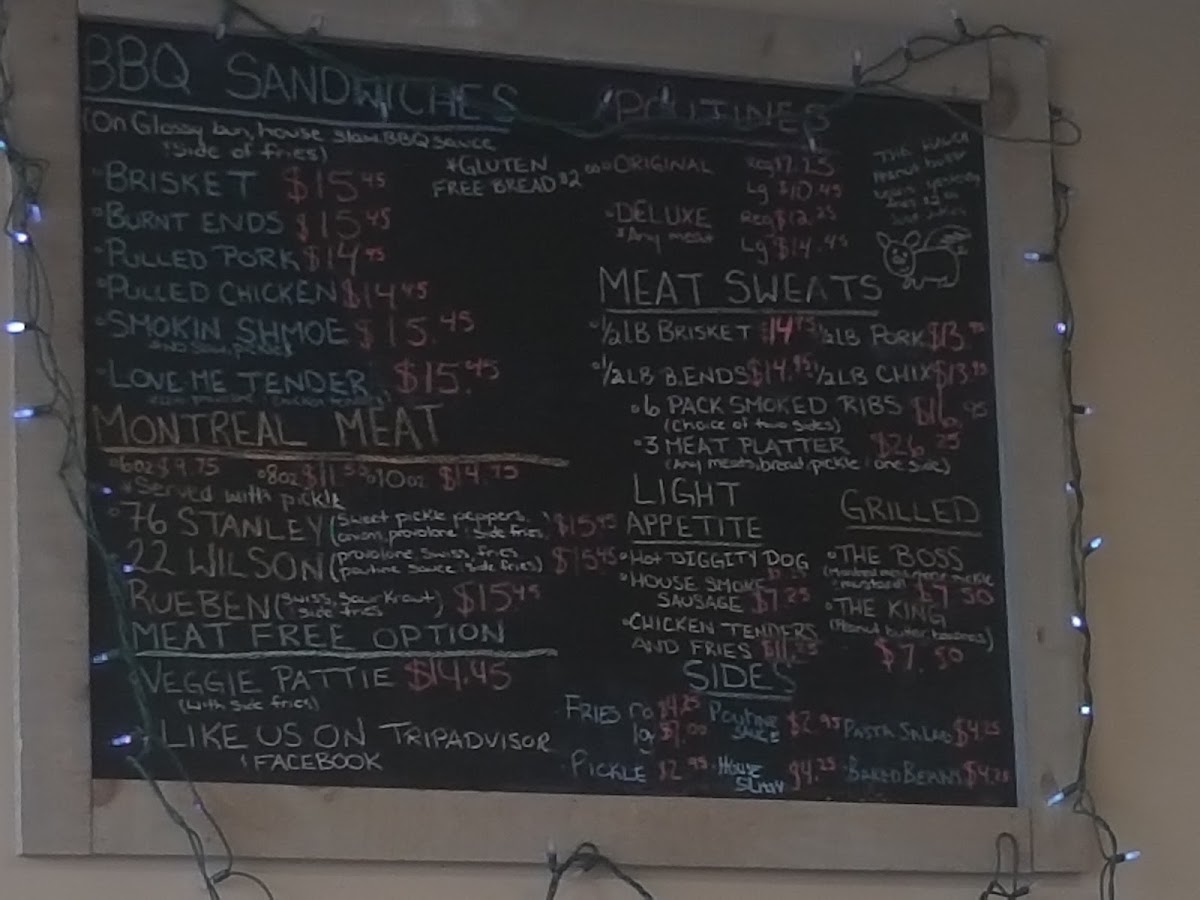 BBQ SANDWICHES
(On Glossy bun, house slaw BBQ sauce
side of fries)
*GLUTEN
FREE BREAD $2
BRISKET $15.45
BURNT ENDS $15.45
PULLED PORK $14.45
PULLED CHICKEN $14.45
SMOKIN SHMOE $15.45
LOVE ME TENDER $15.45
MONTREAL MEAT
6oz $9.75 8oz 10oz $14.75
*Served with pickle
76 STANLEY (Sweet pickle peppers,
onion, provolone side fries) $15.45
22 WILSON (provolone, swiss, fries
poutine sauce side fries) $15.45
RUEBEN (Swiss, Sour Kraut
side fries) $15.45
MEAT FREE OPTION
VEGGIE PATTIE $14.45
(with side fries)
LIKE US ON TRIPADVISOR
FACEBOOK
POUTINES
ORIGINAL Reg
Lg $10.45
DELUXE Reg $12.25
*Any meat Lg $14.45
MEAT SWEATS
1/2LB BRISKET 1/2LB PORK
1/2LB B.ENDS $14.95 1/2LB CHIX $13.95
6 PACK SMOKED RIBS $16.95
(Choice of two sides)
3 MEAT PLATTER $26.25
(Any meats, bread, pickle one side)
LIGHT
APPETITE
HOT DIGGITY DOG
HOUSE SMOKE
SAUSAGE $7.25
CHICKEN TENDERS
AND FRIES $11.25
GRILLED
THE BOSS
mustard) $7.50
THE KING
(Peanut butter bananas)
$7.50
SIDES
FRIES $4.25 Poutine
lg $7.00 SAUCE $2.95 PASTA SALAD $4.25
PICKLE $2.95 HOUSE
SLAW $4.25 BAKED BEANS $4.25